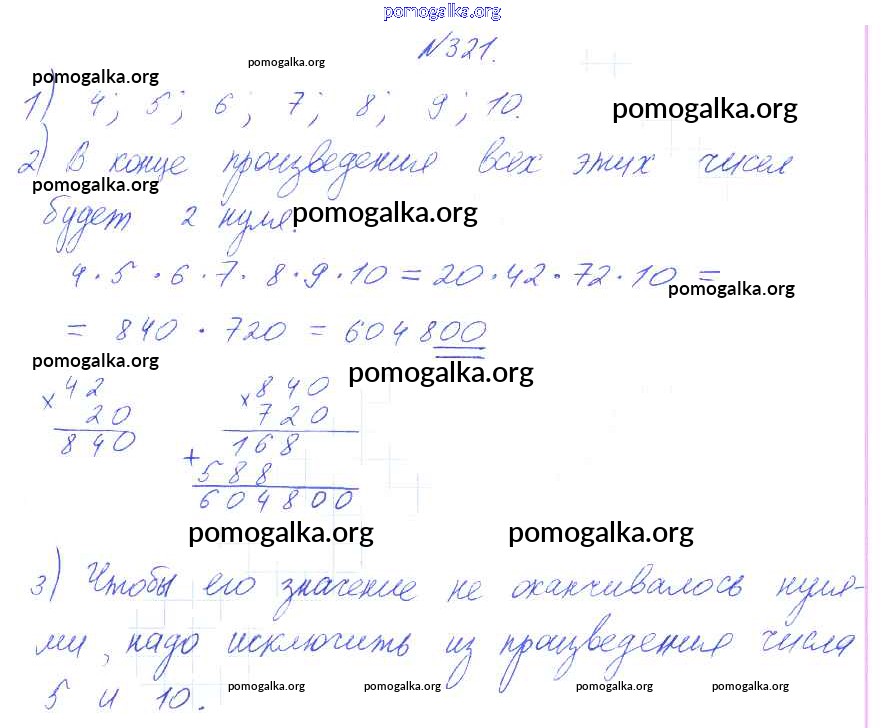 pomogalka.org
№321.
pomogalka.org
pomogalka.org
1) 4; 5; 6; 7; 8; 9; 10.
pomogalka.org
2) В конце произведения всех этих чисел
pomogalka.org
будет 2 нуля.
pomogalka.org
4·5·6·7·8·9·10 = 20·42·72·10 =
pomogalka.org
= 840 · 720 = 604800
pomogalka.org
pomogalka.org
× 42 × 840
20 720
840 168
+ 588
604800
pomogalka.org pomogalka.org
3) Чтобы его значение не оканчивалось нуля-
ми, надо исключить из произведения числа
5 и 10.
pomogalka.org pomogalka.org pomogalka.org pomogalka.org